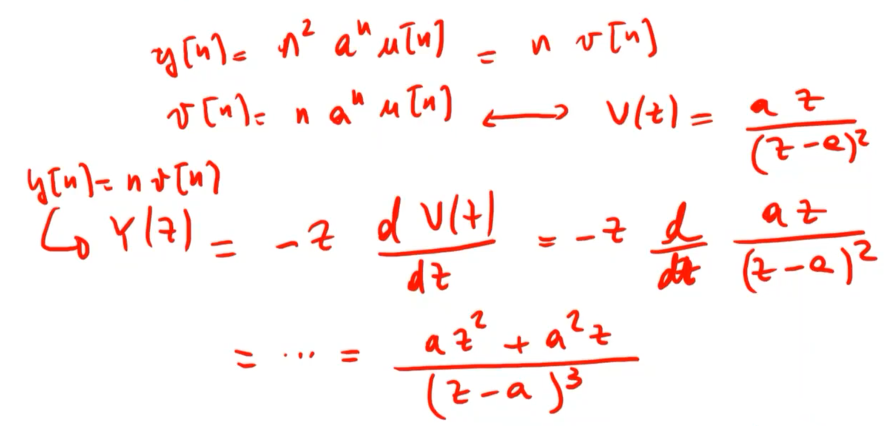 y[n] = n² aⁿ u[n] = n v[n]
v[n] = n aⁿ u[n] ⟷ V(z) = a z / (z - a)²
y[n] = n v[n]
↳ Y(z) = -z d V(z) / dz = -z d/dz a z / (z - a)²
= ... = a z² + a² z / (z - a)³